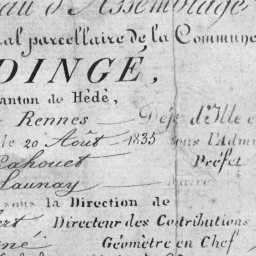 au d'Assemblage
al parcellaire de la Commune
DINGÉ,
anton de Hédé,
Rennes Dép. d'Ille e
le 20 Août 1835 sous l'Adm
Lahouet Préfet
Launay Maire
sous la Direction de
ert Directeur des Contributions
né Géomètre en Chef